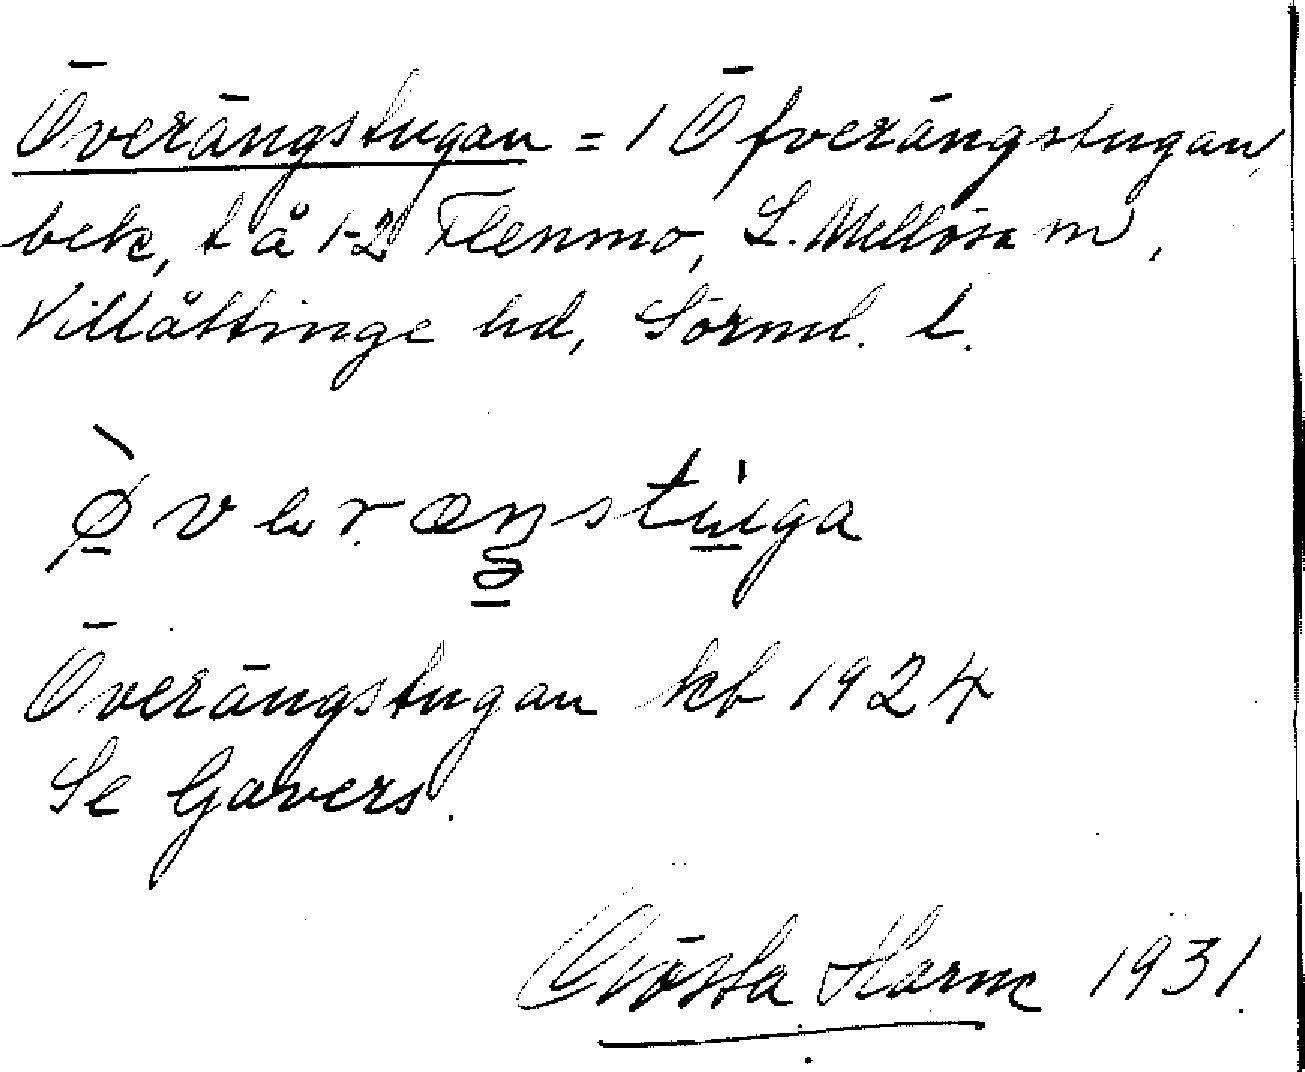 Överängstugan = 1 Öfverängstugan,
bek, t å 1-2 Flenmo, L. Mellösa m,
Villåttinge hd, Sörml. l.
Överängstugan kb 1924
Se Gavers.
Gösta Harne 1931.